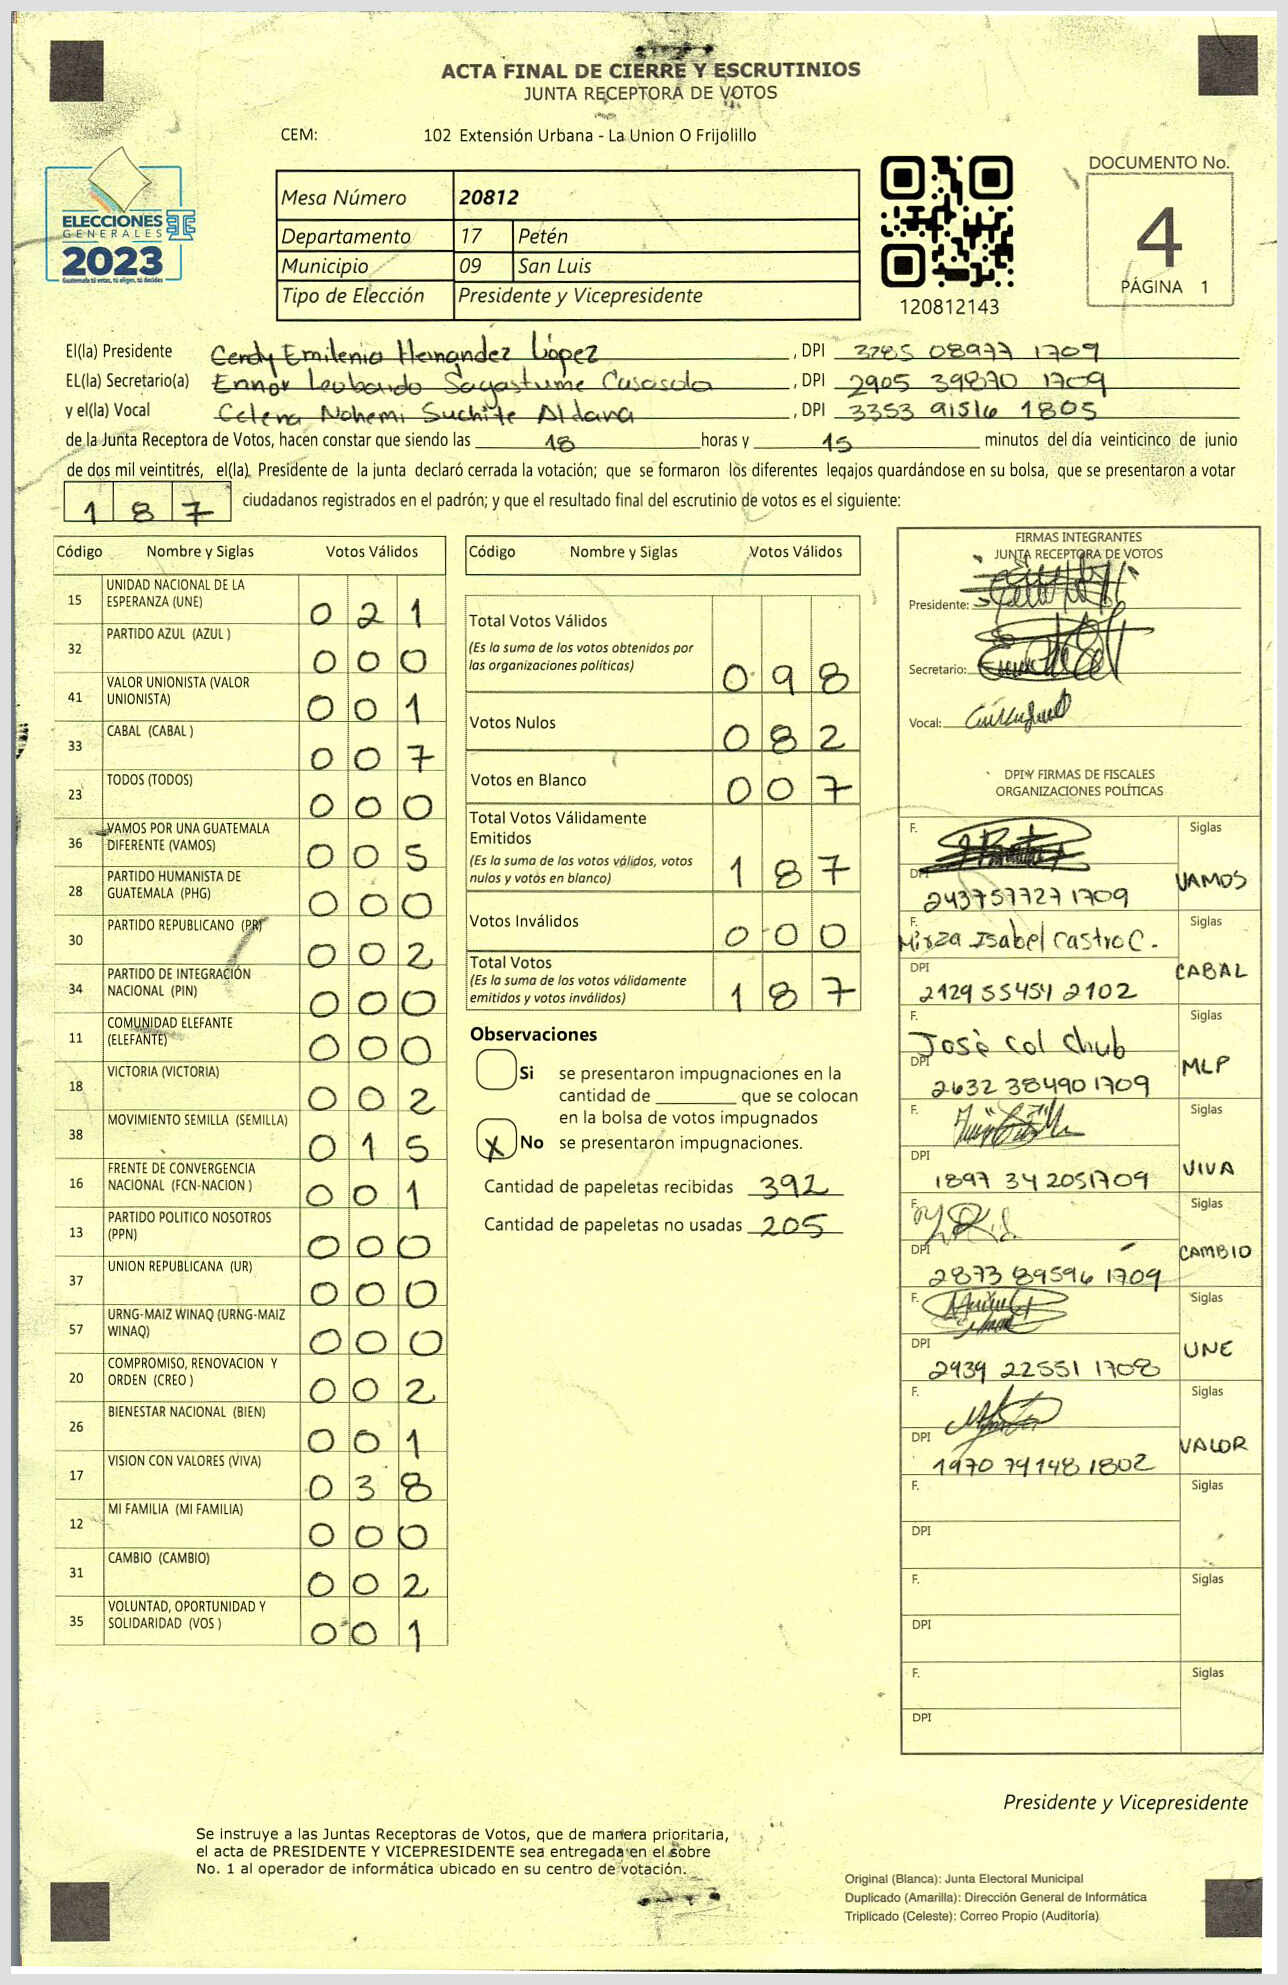 ACTA FINAL DE CIERRE Y ESCRUTINIOS
JUNTA RECEPTORA DE VOTOS
CEM: 102 Extensión Urbana - La Union O Frijolillo
ELECCIONES
GENERALES
2023
Guatemala tú votas, tú eliges, tú decides
Mesa Número 20812
Departamento 17 Petén
Municipio 09 San Luis
Tipo de Elección Presidente y Vicepresidente
120812143
DOCUMENTO No.
4
PÁGINA 1
El(la) Presidente Cerdy Emilenia Hernandez López , DPI 3285 08977 1709
EL(la) Secretario(a) Ennor Leubardo Sagastume Casasola , DPI 2905 39870 1709
y el(la) Vocal Celena Nohemi Suchite Aldana , DPI 3353 91516 1805
de la Junta Receptora de Votos, hacen constar que siendo las 18 horas y 15 minutos del día veinticinco de junio
de dos mil veintitrés, el(la) Presidente de la junta declaró cerrada la votación; que se formaron los diferentes legajos quardándose en su bolsa, que se presentaron a votar
187 ciudadanos registrados en el padrón; y que el resultado final del escrutinio de votos es el siguiente:
Código Nombre y Siglas Votos Válidos
15 UNIDAD NACIONAL DE LA
ESPERANZA (UNE) 021
32 PARTIDO AZUL (AZUL ) 000
41 VALOR UNIONISTA (VALOR
UNIONISTA) 001
33 CABAL (CABAL ) 007
23 TODOS (TODOS) 000
36 VAMOS POR UNA GUATEMALA
DIFERENTE (VAMOS) 005
28 PARTIDO HUMANISTA DE
GUATEMALA (PHG) 000
30 PARTIDO REPUBLICANO (PR) 002
34 PARTIDO DE INTEGRACIÓN
NACIONAL (PIN) 000
11 COMUNIDAD ELEFANTE
(ELEFANTE) 000
18 VICTORIA (VICTORIA) 002
38 MOVIMIENTO SEMILLA (SEMILLA) 015
16 FRENTE DE CONVERGENCIA
NACIONAL (FCN-NACION ) 001
13 PARTIDO POLITICO NOSOTROS
(PPN) 000
37 UNION REPUBLICANA (UR) 000
57 URNG-MAIZ WINAQ (URNG-MAIZ
WINAQ) 000
20 COMPROMISO, RENOVACION Y
ORDEN (CREO ) 002
26 BIENESTAR NACIONAL (BIEN) 001
17 VISION CON VALORES (VIVA) 038
12 MI FAMILIA (MI FAMILIA) 000
31 CAMBIO (CAMBIO) 002
35 VOLUNTAD, OPORTUNIDAD Y
SOLIDARIDAD (VOS ) 001
Código Nombre y Siglas Votos Válidos
Total Votos Válidos
(Es la suma de los votos obtenidos por
las organizaciones políticas) 098
Votos Nulos 082
Votos en Blanco 007
Total Votos Válidamente
Emitidos
(Es la suma de los votos válidos, votos
nulos y votos en blanco) 187
Votos Inválidos 000
Total Votos
(Es la suma de los votos válidamente
emitidos y votos inválidos) 187
Observaciones
Si se presentaron impugnaciones en la
cantidad de ________ que se colocan
en la bolsa de votos impugnados
X No se presentaron impugnaciones.
Cantidad de papeletas recibidas 392
Cantidad de papeletas no usadas 205
FIRMAS INTEGRANTES
JUNTA RECEPTORA DE VOTOS
Presidente:
Secretario:
Vocal:
DPI Y FIRMAS DE FISCALES
ORGANIZACIONES POLÍTICAS
F. Siglas
DPI 243757727 1709 VAMOS
F. Mirza Isabel Castro C. Siglas
DPI 2129 55454 2102 CABAL
F. José Col Chub Siglas
DPI 2632 38490 1709 MLP
F. Siglas
DPI 1897 34 2051709 VIVA
F. Siglas
DPI 2873 89596 1709 CAMBIO
F. Siglas
DPI 2939 22551 1708 UNE
F. Siglas
DPI 1970 74148 1802 VALOR
F. Siglas
DPI
F. Siglas
DPI
F. Siglas
DPI
Presidente y Vicepresidente
Se instruye a las Juntas Receptoras de Votos, que de manera prioritaria,
el acta de PRESIDENTE Y VICEPRESIDENTE sea entregada en el sobre
No. 1 al operador de informática ubicado en su centro de votación.
Original (Blanca): Junta Electoral Municipal
Duplicado (Amarilla): Dirección General de Informática
Triplicado (Celeste): Correo Propio (Auditoría)